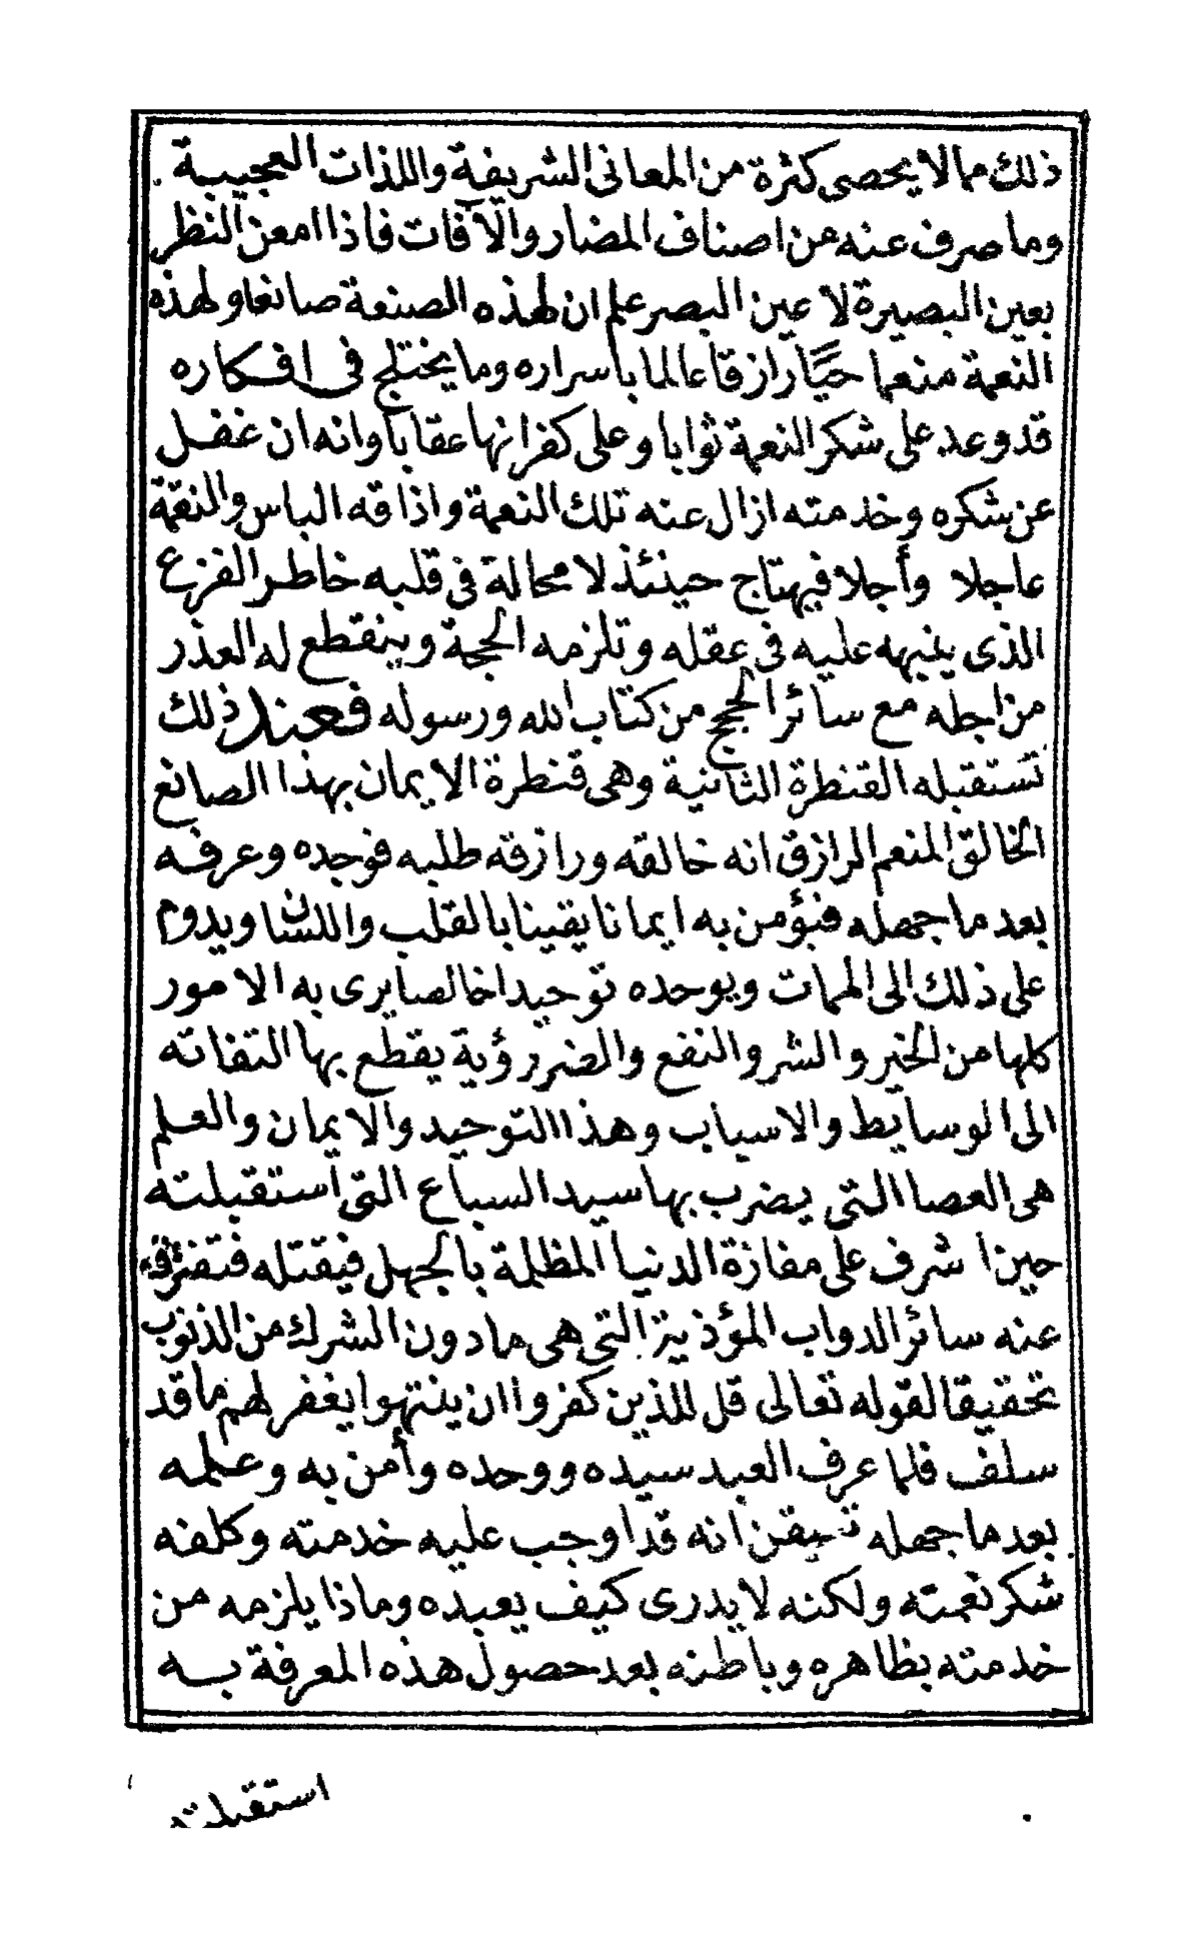 ذلك مما لا يحصى كثرة من المعانى الشريفة واللذات العجيبة
وما صرف عنه من اصناف المضار والآفات فاذا امعن النظر
بعين البصيرة لا عين البصر علم ان لهذه الصنعة صانعا ولهذه
النعمة منعما حيًّا رازقا عالما باسراره وما يختلج فى افكاره
قد وعد على شكر النعمة ثوابا وعلى كفرانها عقابا وانه ان غفل
عن شكره وخدمته ازال عنه تلك النعمة واذاقه الباس والنقمة
عاجلا وأجلا فيهتاج حينئذ لا محالة فى قلبه خاطر الفزع
الذى ينبهه عليه فى عقله وتلزمه الحجة وينقطع له العذر
من اجله مع سائر الحجج من كتاب الله ورسوله فعند ذلك
تستقبله القنطرة الثانية وهى قنطرة الايمان بهذا الصانع
الخالق المنعم الرازق انه خالقه ورازقه طلبه فوجده وعرفه
بعد ما جهله فيؤمن به ايمانا يقينا بالقلب واللسان ويدوم
على ذلك الى الممات ويوحده توحيدا خالصا يرى به الامور
كلها من الخير والشر والنفع والضرر رؤية يقطع بها التفاته
الى الوسايط والاسباب وهذا التوحيد والايمان والعلم
هى العصا التى يضرب بها سيد السباع التى استقبلته
حين اشرف على مفازة الدنيا المظلمة بالجهل فيقتله فتفترق
عنه سائر الدواب المؤذية التى هى مادون الشرك من الذنوب
تحقيقا لقوله تعالى قل للذين كفروا ان ينتهوا يغفر لهم ما قد
سلف فلما عرف العبد سيده ووحده وأمن به وعلمه
بعد ما جهله تيقن انه قد اوجب عليه خدمته وكلفه
شكر نعمته ولكنه لا يدرى كيف يعبده وماذا يلزمه من
خدمته بظاهره وباطنه بعد حصول هذه المعرفة به
استقبلته